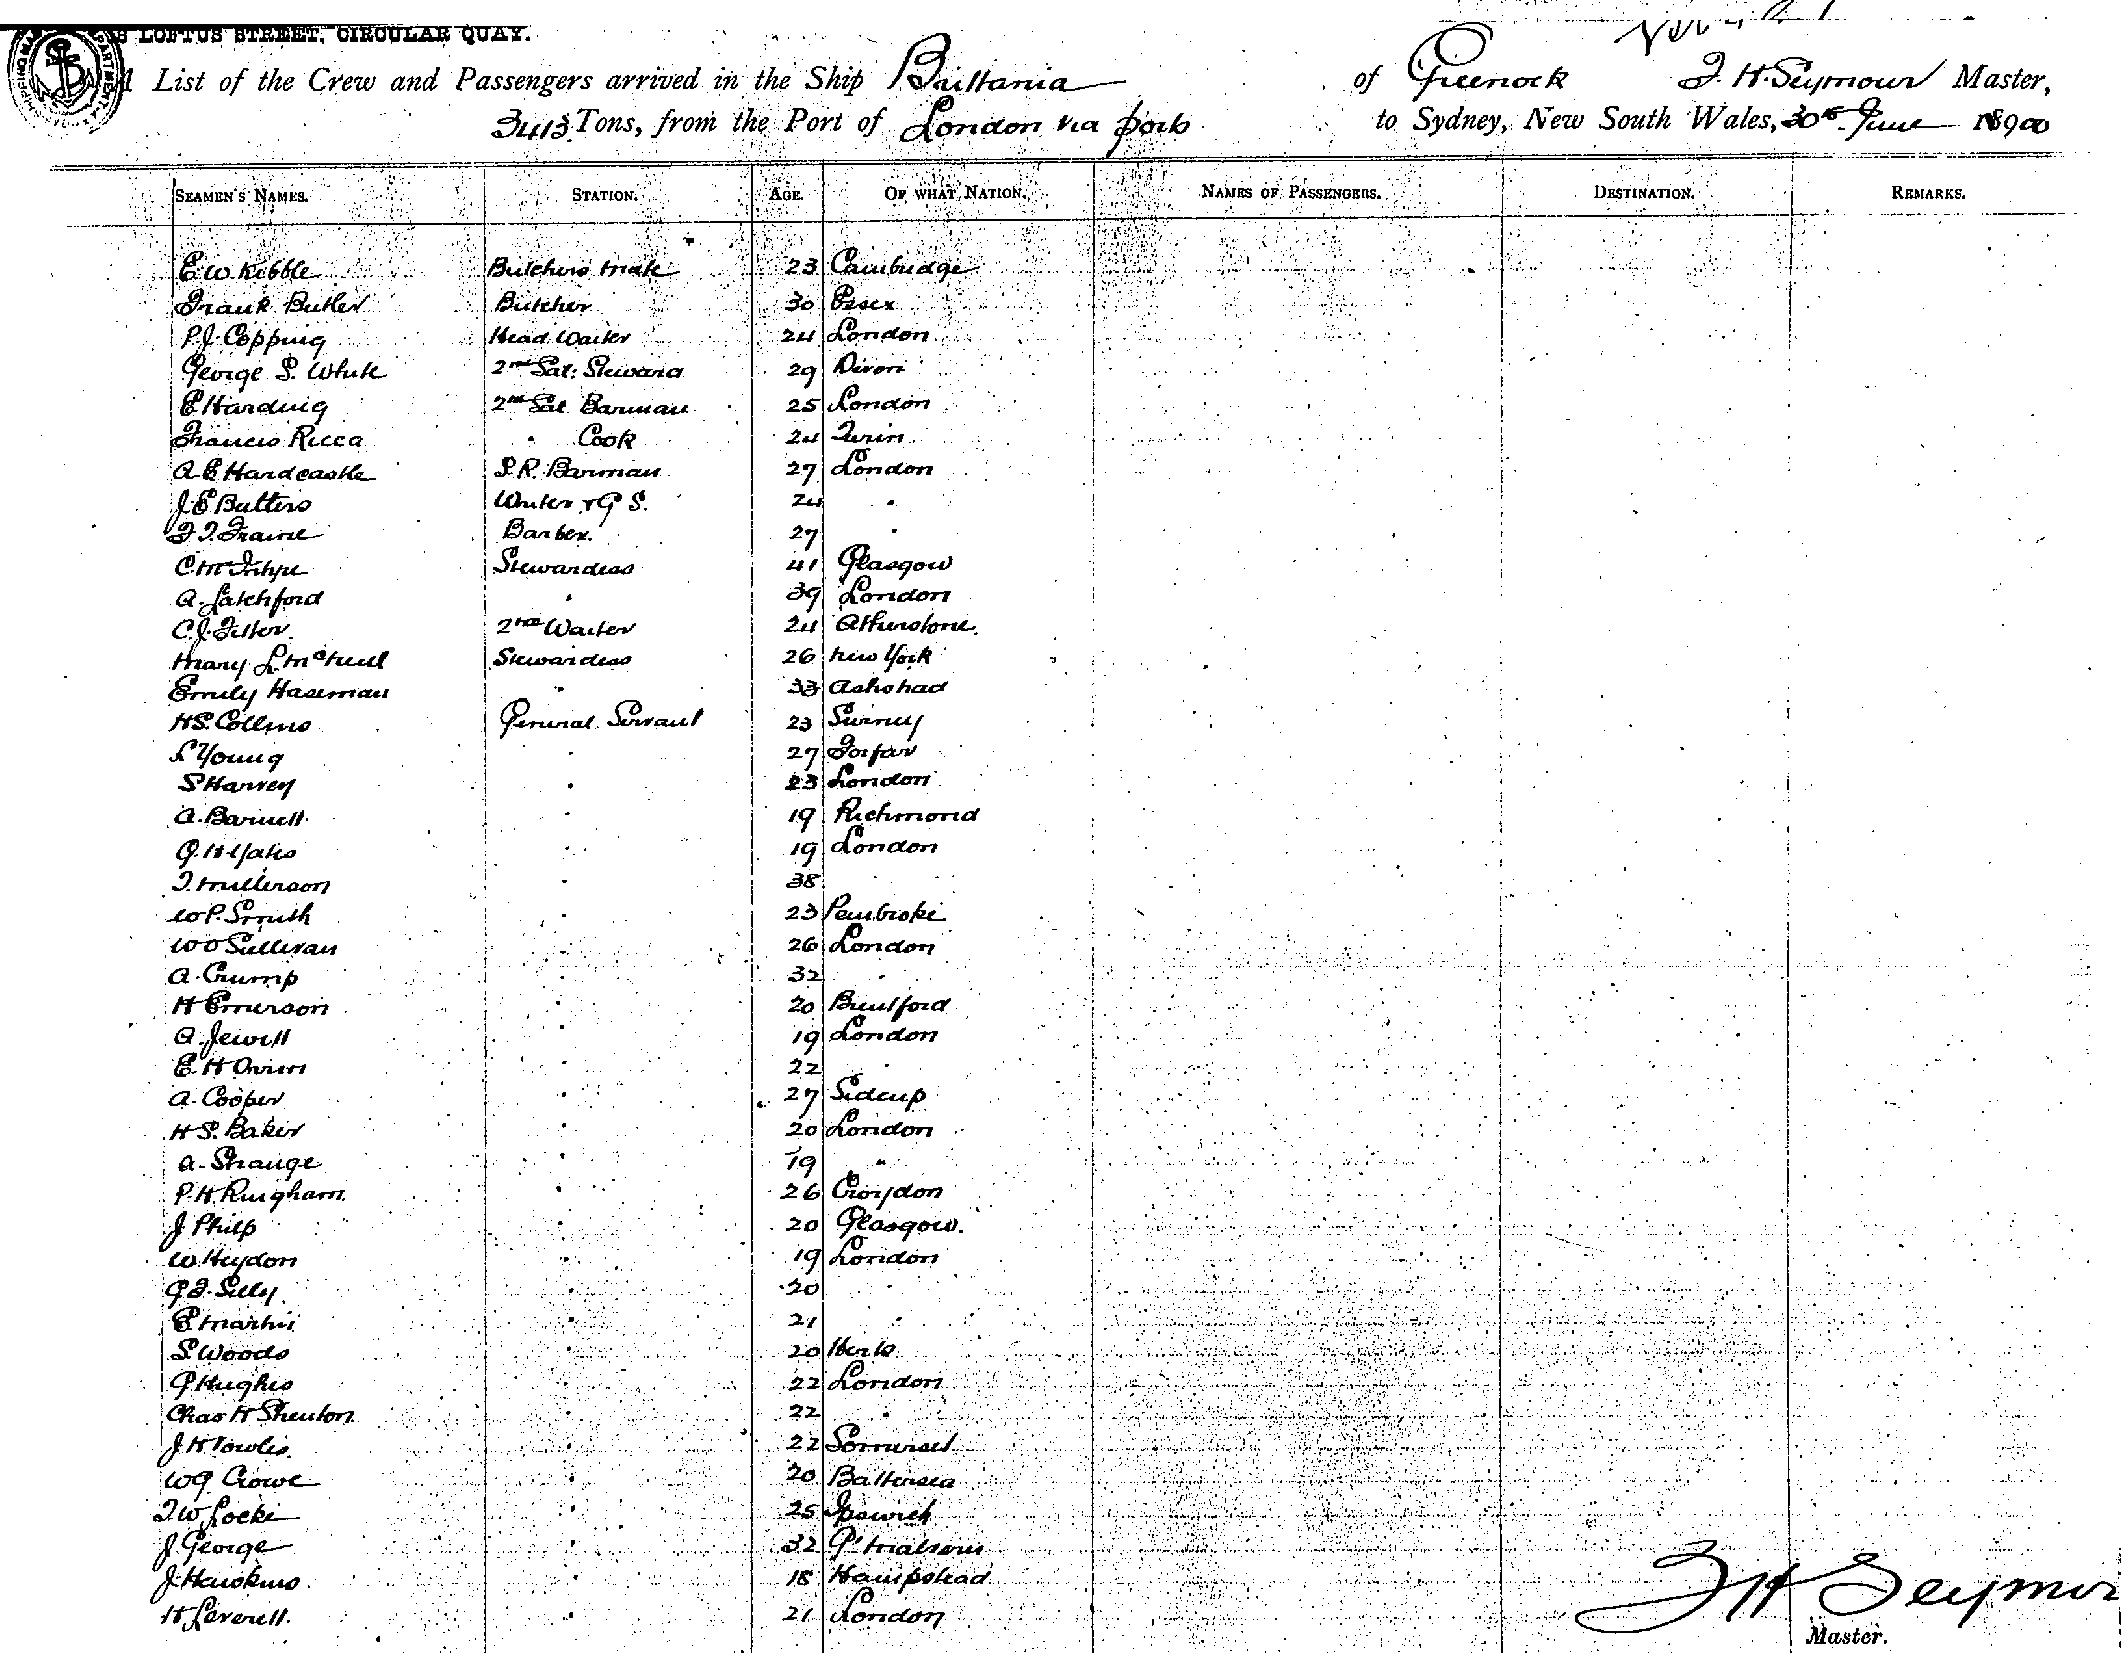 LOFTUS STREET, CIRCULAR QUAY.
List of the Crew and Passengers arrived in the Ship Brittania of Greenock F. H. Seymour Master,
3413 Tons, from the Port of London via ports to Sydney, New South Wales, 30th June 1890
SEAMEN'S NAMES. STATION. AGE. OF WHAT NATION. NAMES OF PASSENGERS. DESTINATION. REMARKS.
E W Kebble Butchers Mate 23 Cambridge
Frank Butler Butcher 30 Essex
P. J. Copping Head Waiter 24 London
George S. White 2nd Sal: Steward 29 Devon
E Harding 2nd Sal Barman 25 London
Francis Ricca " Cook 24 Turin
A E Hardcastle S. R. Barman 27 London
J. E Butters Waiter & G S. 24 "
F. F. Frame Barber 27 "
C McIntyre Stewardess 41 Glasgow
A. Latchford " 39 London
C. J. Filler 2nd Waiter 24 Atherstone
Mary L McNeill Stewardess 26 New York
Emily Haseman " 33 Ashstead
H S. Collins General Servant 23 Surrey
L Young " 27 Forfar
S Harvey " 23 London
A. Barnett " 19 Richmond
G. H Yates " 19 London
T. Mullerson " 38
W P. Smith " 23 Pembroke
W O Sullivan " 26 London
A. Crump " 32 "
H Emerson " 20 Brentford
A. Jewell " 19 London
E. H Orrin " 22 "
A. Cooper " 27 Sidcup
H S. Baker " 20 London
A. Strange " 19 "
P. H. Ringham " 26 Croydon
J Philp " 20 Glasgow.
W. Heydon " 19 London
G F. Silly " 20 "
E Martin " 21 "
S. Woods " 20 Herts
G Hughes " 22 London
Chas H Shenton " 22 "
J. H Towles " 22 Somerset
W G Crowe " 20 Battersea
F W Locke " 25 Ipswich
J. George " 32
J. Hawkins " 18 Hampstead
H Leverett. " 21 London
F H Seymour
Master.